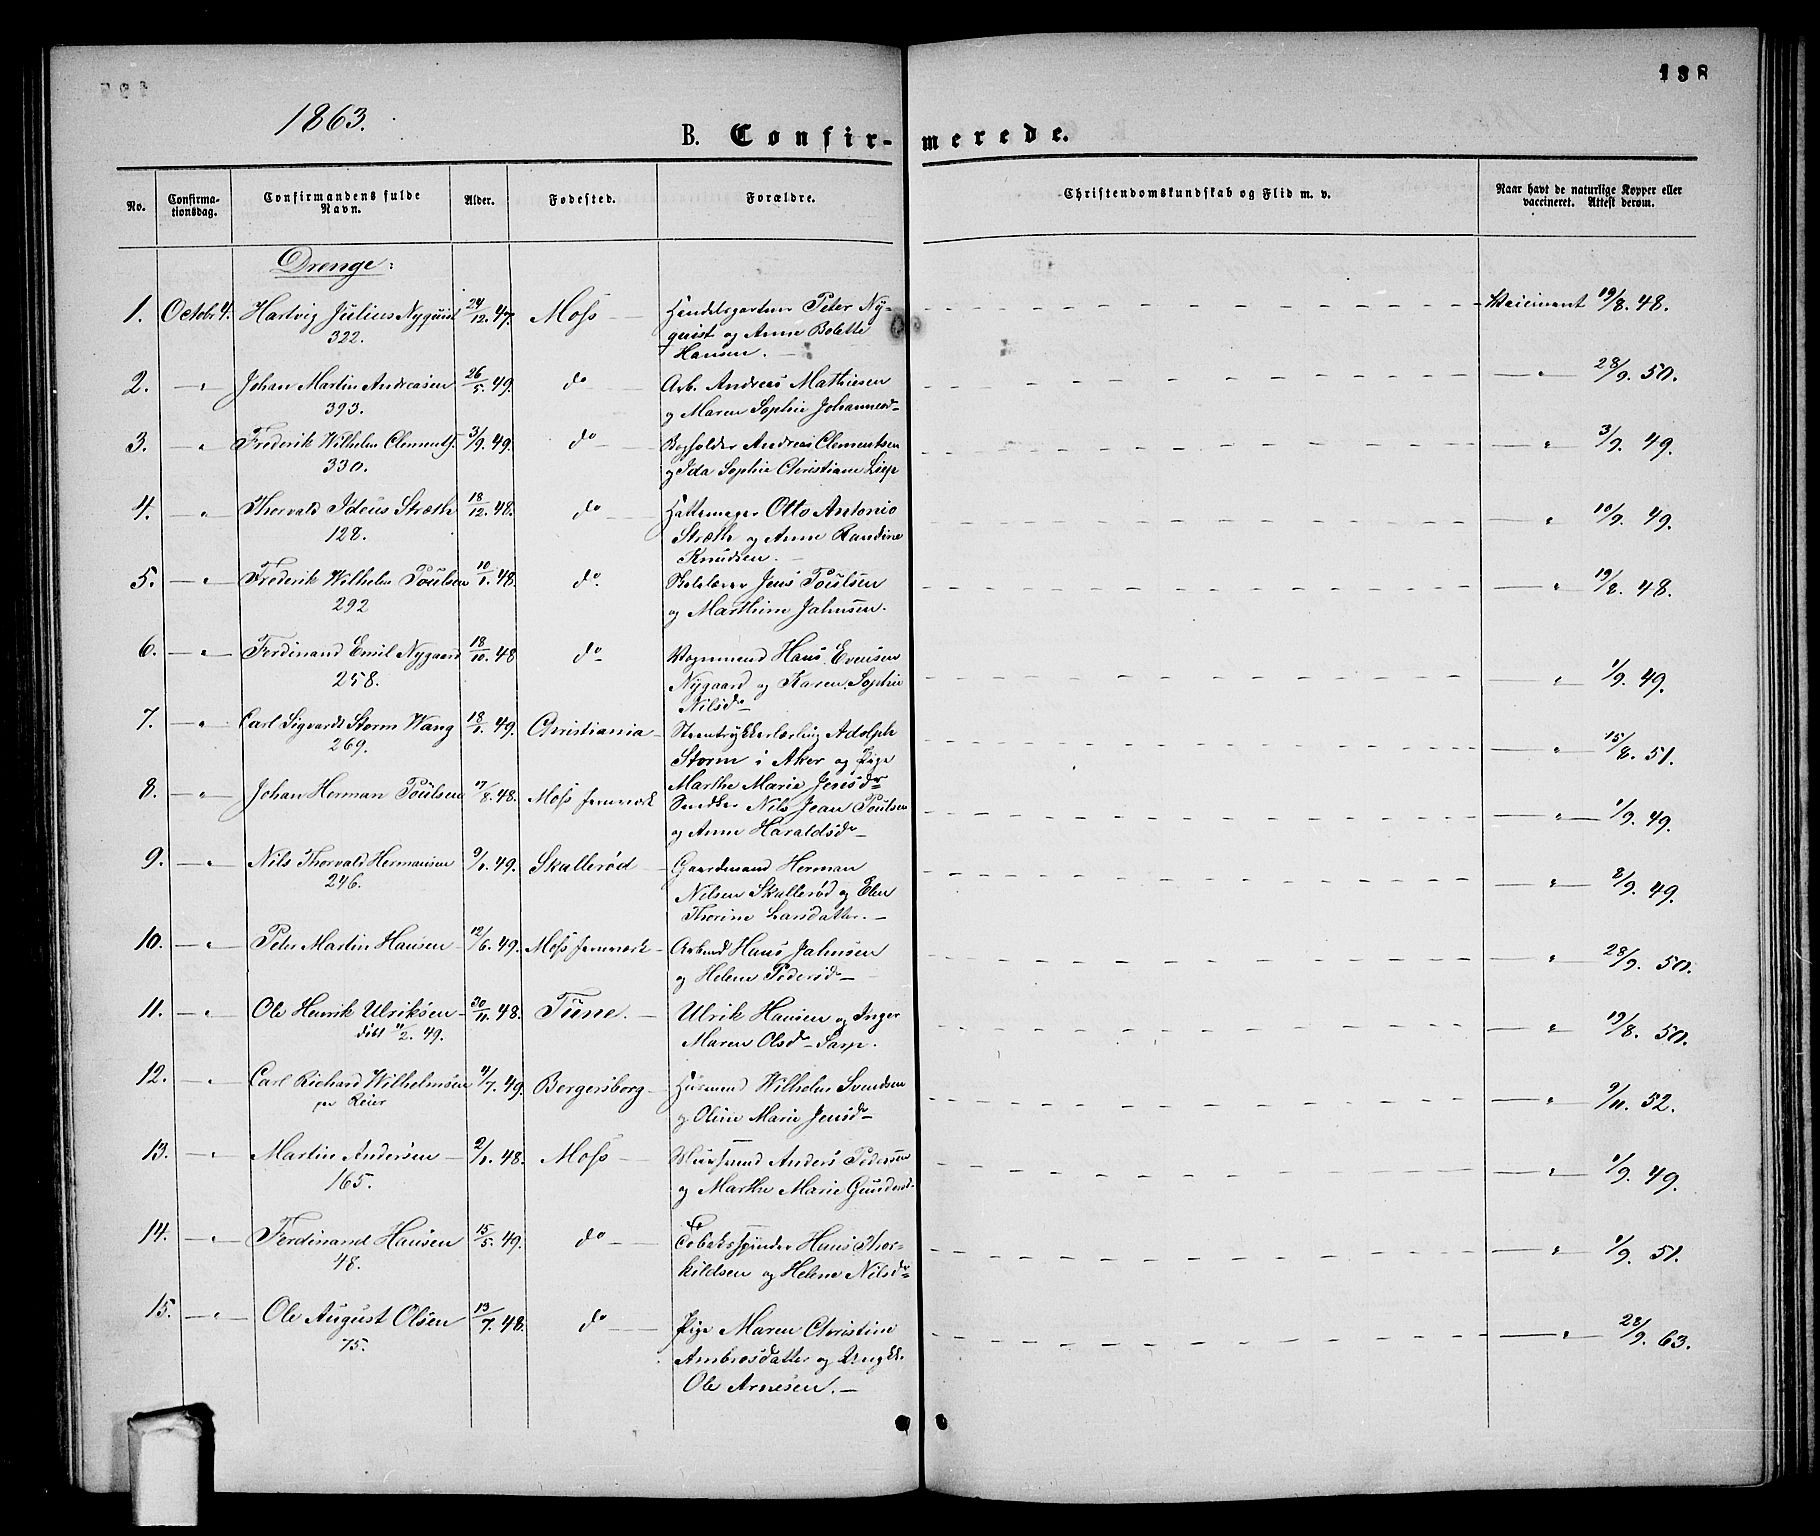 188
1863.
B. Confirmerede.
No. Confirmationsdag. Confirmandens fulde Navn. Alder. Fødested. Forældre. Christendomskundskab og Flid m. v. Naar havt de naturlige Kopper eller vaccineret. Attest derom.
Drenge:
1. Octobr 4. Hartvig Julius Nyquist 24/12. 47. Moss Handelsgartner Peter Ny- Vaccineret 19/8. 48.
322. quist og Anne Bolette
Hansen.
2. — " Johan Martin Andreasen 26/5. 49. do Arb. Andreas Mathiesen — " 28/9. 50.
393. og Maren Sophie Johannesd
3. — " Frederik Wilhelm Clements. 3/9. 49. do Bogholder Andreas Clementsen — " 3/9. 49.
330. og Ida Sophie Christiane Liep
4. — " Thorvald Ideus Stræth 18/12. 48. do Hattemager Otto Antonio — " 10/9. 49.
128. Stræth og Anne Randine
Knudsen.
5. — " Frederik Wilhelm Poulsen 10/1. 48. do. Skolelærer Jens Poulsen — " 19/8. 48.
292 og Marthine Jahnsen.
6. — " Ferdinand Emil Nygaard 18/10. 48 do Vognmand Hans Evensen — " 1/9. 49.
258. Nygaard og Karen Sophie
Nilsd
7. — " Carl Sigvardt Storm Wang 18/1. 49. Christiania Steentrykkerlærling Adolph — " 15/8. 51.
269. Storm i Aker og Pige
Marthe Marie Jensd
8. — " Johan Herman Poulsen 17/8. 48. Moss Jernværk Snedker Nils Jean Poulsen — " 1/9. 49.
og Anne Haraldsd
9. — " Nils Thorvald Hermansen 9/1. 49. Skallerød Gaardmand Herman — " 8/9. 49.
246. Nilsen Skallerød og Elen
Thorine Larsdatter.
10. — " Peter Martin Hansen 12/6. 49. Moss Jernværk Arbmd Hans Jahnsen — " 28/9. 50.
og Helene Pedersd
11. — " Ole Henrik Ulriksen 30/11. 48. Tune. Ulrik Hansen og Inger — " 19/8. 50.
döbt 11/2. 49. Maren Olsd Sarp.
12. — " Carl Richard Wilhelmsen 11/7. 49. Bergersborg Husmand Wilhelm Svendsen — " 9/11. 52.
Reier og Oline Marie Jensd
13. — " Martin Andersen 2/1. 48. Moss Anders Pedersen — " 1/9. 49.
165. og Marthe Marie Gundersd
14. — " Ferdinand Hansen 15/5. 49. do Tobaksspinder Hans Thor- — " 1/9. 51.
48. kildsen og Helene Nilsd
15. — " Ole August Olsen 13/7. 48. do Pige Maren Christine — " 28/9. 63.
75. Ambrosdatter og Ungk.
Ole Arnesen.